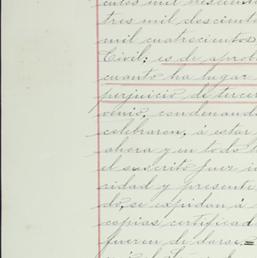 tres mil descient
mil cuatrocientos
Civil; es de aprob
cuanto ha lugar
perjuicio de tercer
venio, condenand
celebraron, á estar
ahora y en todo t
el suscrito juez in
ridad y presente
do, se expidan á
copias certificad
fueren de darse.=